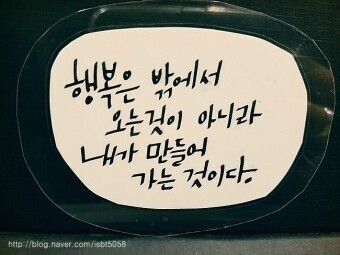 행복은 밖에서
오는것이 아니라
내가 만들어
가는 것이다.
http://blog.naver.com/isbt5058